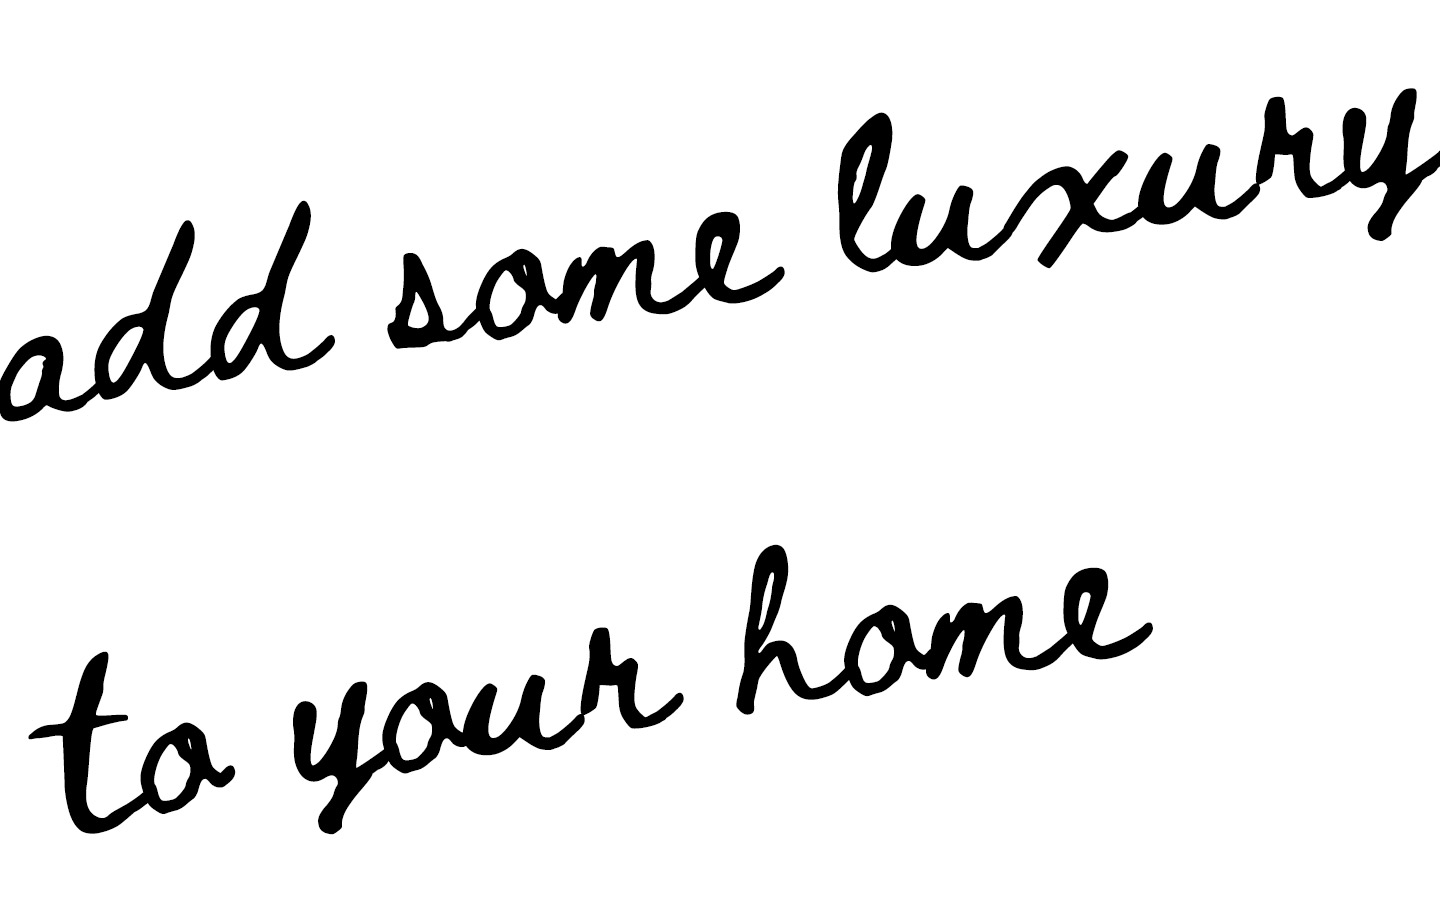 add some luxury
to your home